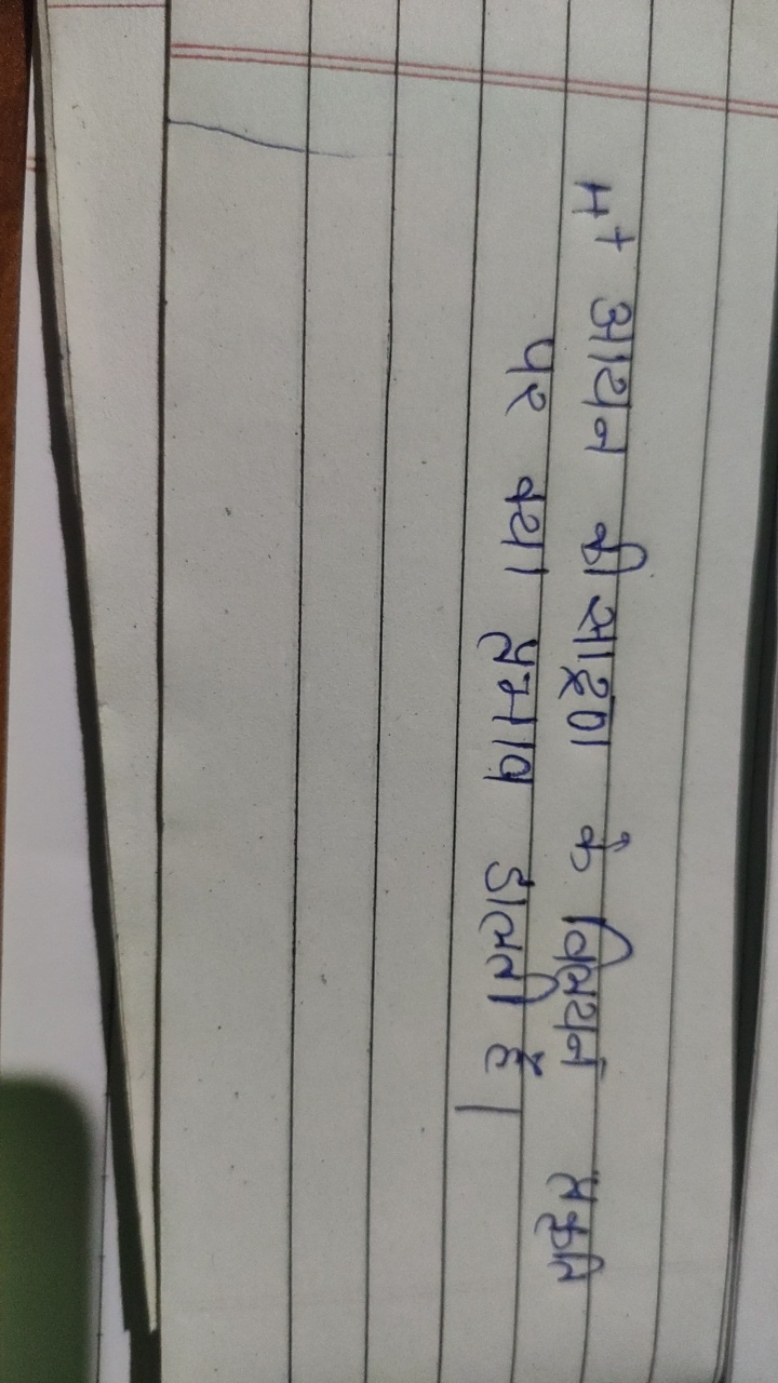 H⁺ आयन की सान्द्रता के विलयन प्रकृति
पर क्या प्रभाव डालती है।